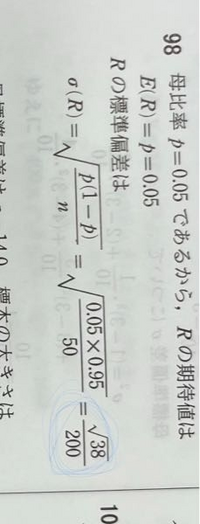 98 母比率 p=0.05 であるから, R の期待値は
E(R)=p=0.05
R の標準偏差は
σ(R)=√(p(1-p)/n)=√(0.05×0.95/50)=√38/200
14.0 標本の大きさは
10